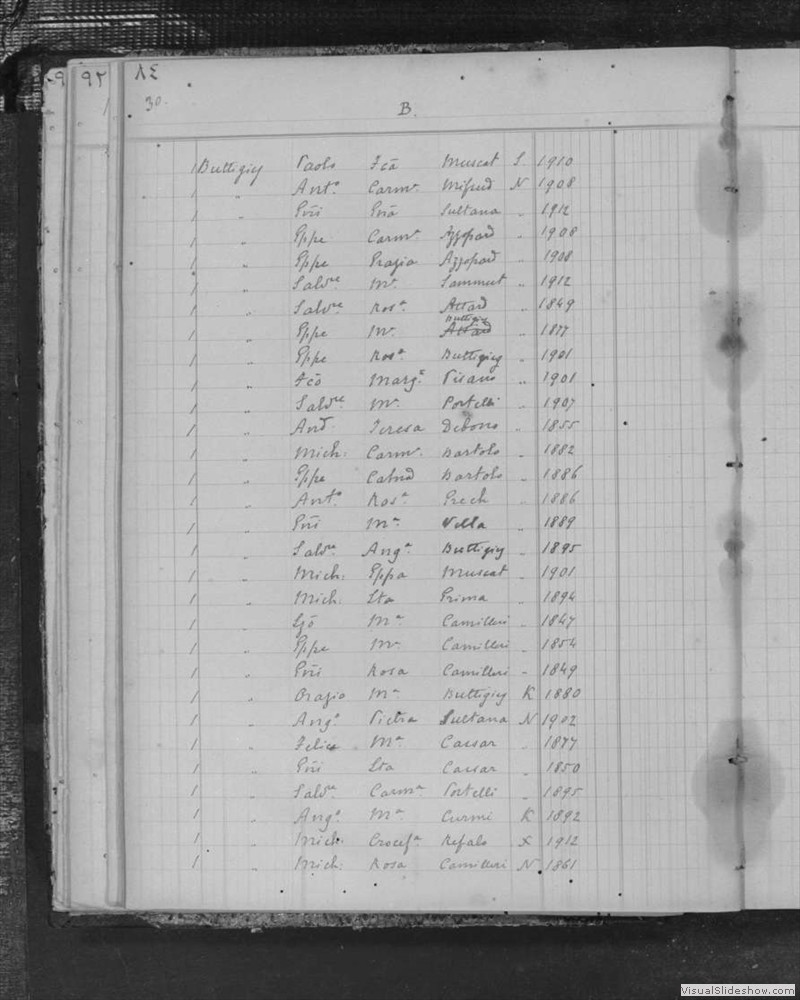 ٩ ٩٢ ٨٤
30. B.
1 Buttigieg Paolo Fcō Muscat S 1910
1 " Ant.º Carm.ª Mifsud N 1908
1 " Gnī Gnā Sultana " 1912
1 " Gppe Carm.ª Azzopard " 1908
1 " Gppe Grazia Azzopard " 1908
1 " Salv.re M.ª Sammut " 1912
1 " Salv.re Ros.ª Attard " 1849
1 " Gppe M.ª Attard Buttigieg " 1877
1 " Gppe Ros.ª Buttigieg " 1901
1 " Fcō Marg.ª Pisano " 1901
1 " Salv.re M.ª Portelli " 1907
1 " And. Teresa Debono " 1855
1 " Mich: Carm.ª Bartolo " 1882
1 " Gppe Catnd Bartolo " 1886
1 " Ant.º Ros.ª Grech " 1886
1 " Gnī M.ª Vella " 1889
1 " Salv.re Ang.ª Buttigieg " 1895
1 " Mich: Gppa Muscat " 1901
1 " Mich: Sta Grima " 1894
1 " Gō M.ª Camilleri " 1847
1 " Gppe M.ª Camilleri " 1854
1 " Gnī Rosa Camilleri " 1849
1 " Orazio M.ª Buttigieg K 1880
1 " Ang.º Pietra Sultana N 1902
1 " Felice M.ª Caesar " 1877
1 " Gnī Sta Caesar " 1850
1 " Salv.re Carm.ª Portelli " 1895
1 " Ang.º M.ª Curmi K 1892
1 " Mich: Crocef.ª Refalo X 1912
1 " Mich: Rosa Camilleri N 1861
VisualSlideshow.com